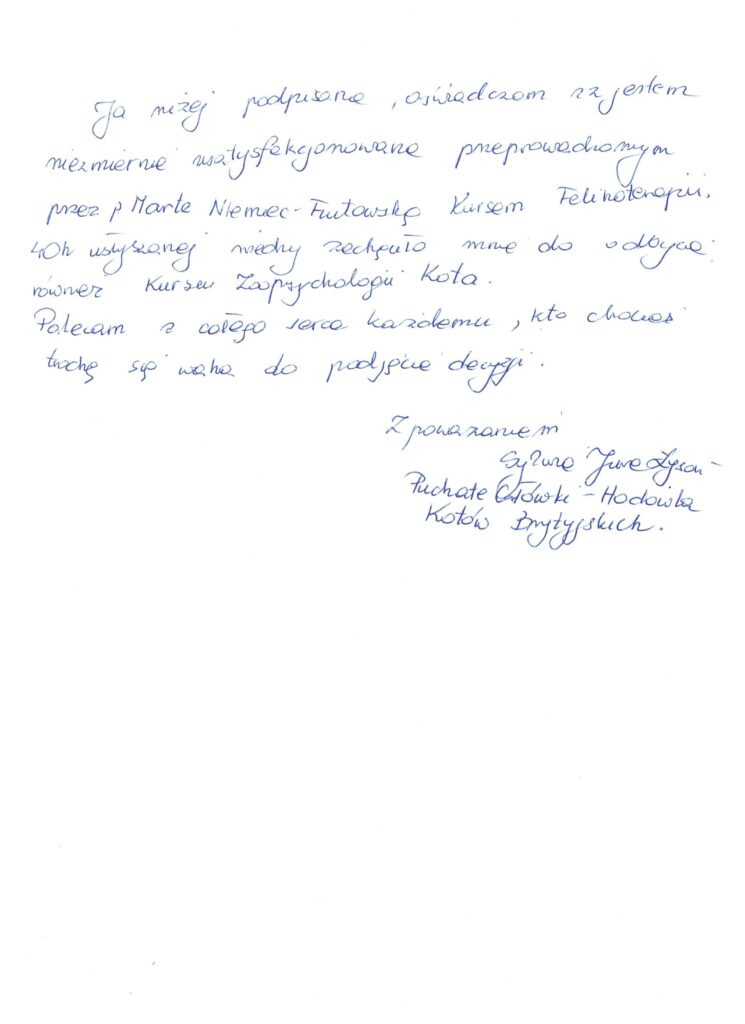 Ja niżej podpisana, oświadczam iż jestem
niezmiernie usatysfakcjonowana przeprowadzonym
przez p Martę Niemiec-Futowską Kursem Felinoterapii.
40h usłyszanej wiedzy zachęciło mnie do odbycia
również Kursu Zoopsychologii Kota.
Polecam z całego serca każdemu, kto chociaż
trochę się waha do podjęcia decyzji.
Z poważaniem
Sylwia
Puchate Główki - Hodowla
Kotów Brytyjskich.